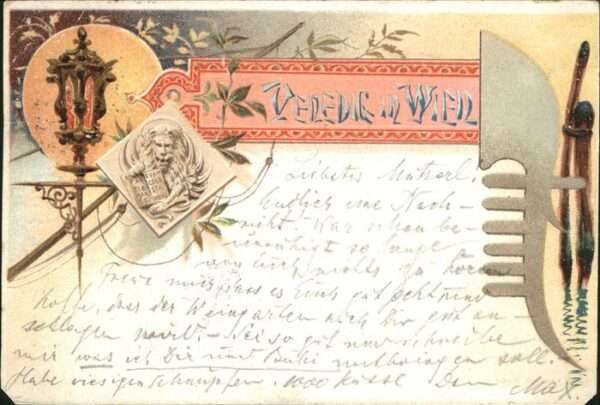 Venedig in Wien
Liebstes Mutzerl!
Endlich eine Nach-
richt! War schon be-
unruhigt so lange
von Euch nichts zu hören
Freue mich dass es Euch gut geht und
hoffe, dass der Weingarten auch Dir gut an-
schlagen wird. - Sei so gut und schreibe
mir was ich Dir und mitbringen soll.
Habe riesigen Schnupfen. 1000 Küsse Dein Max.